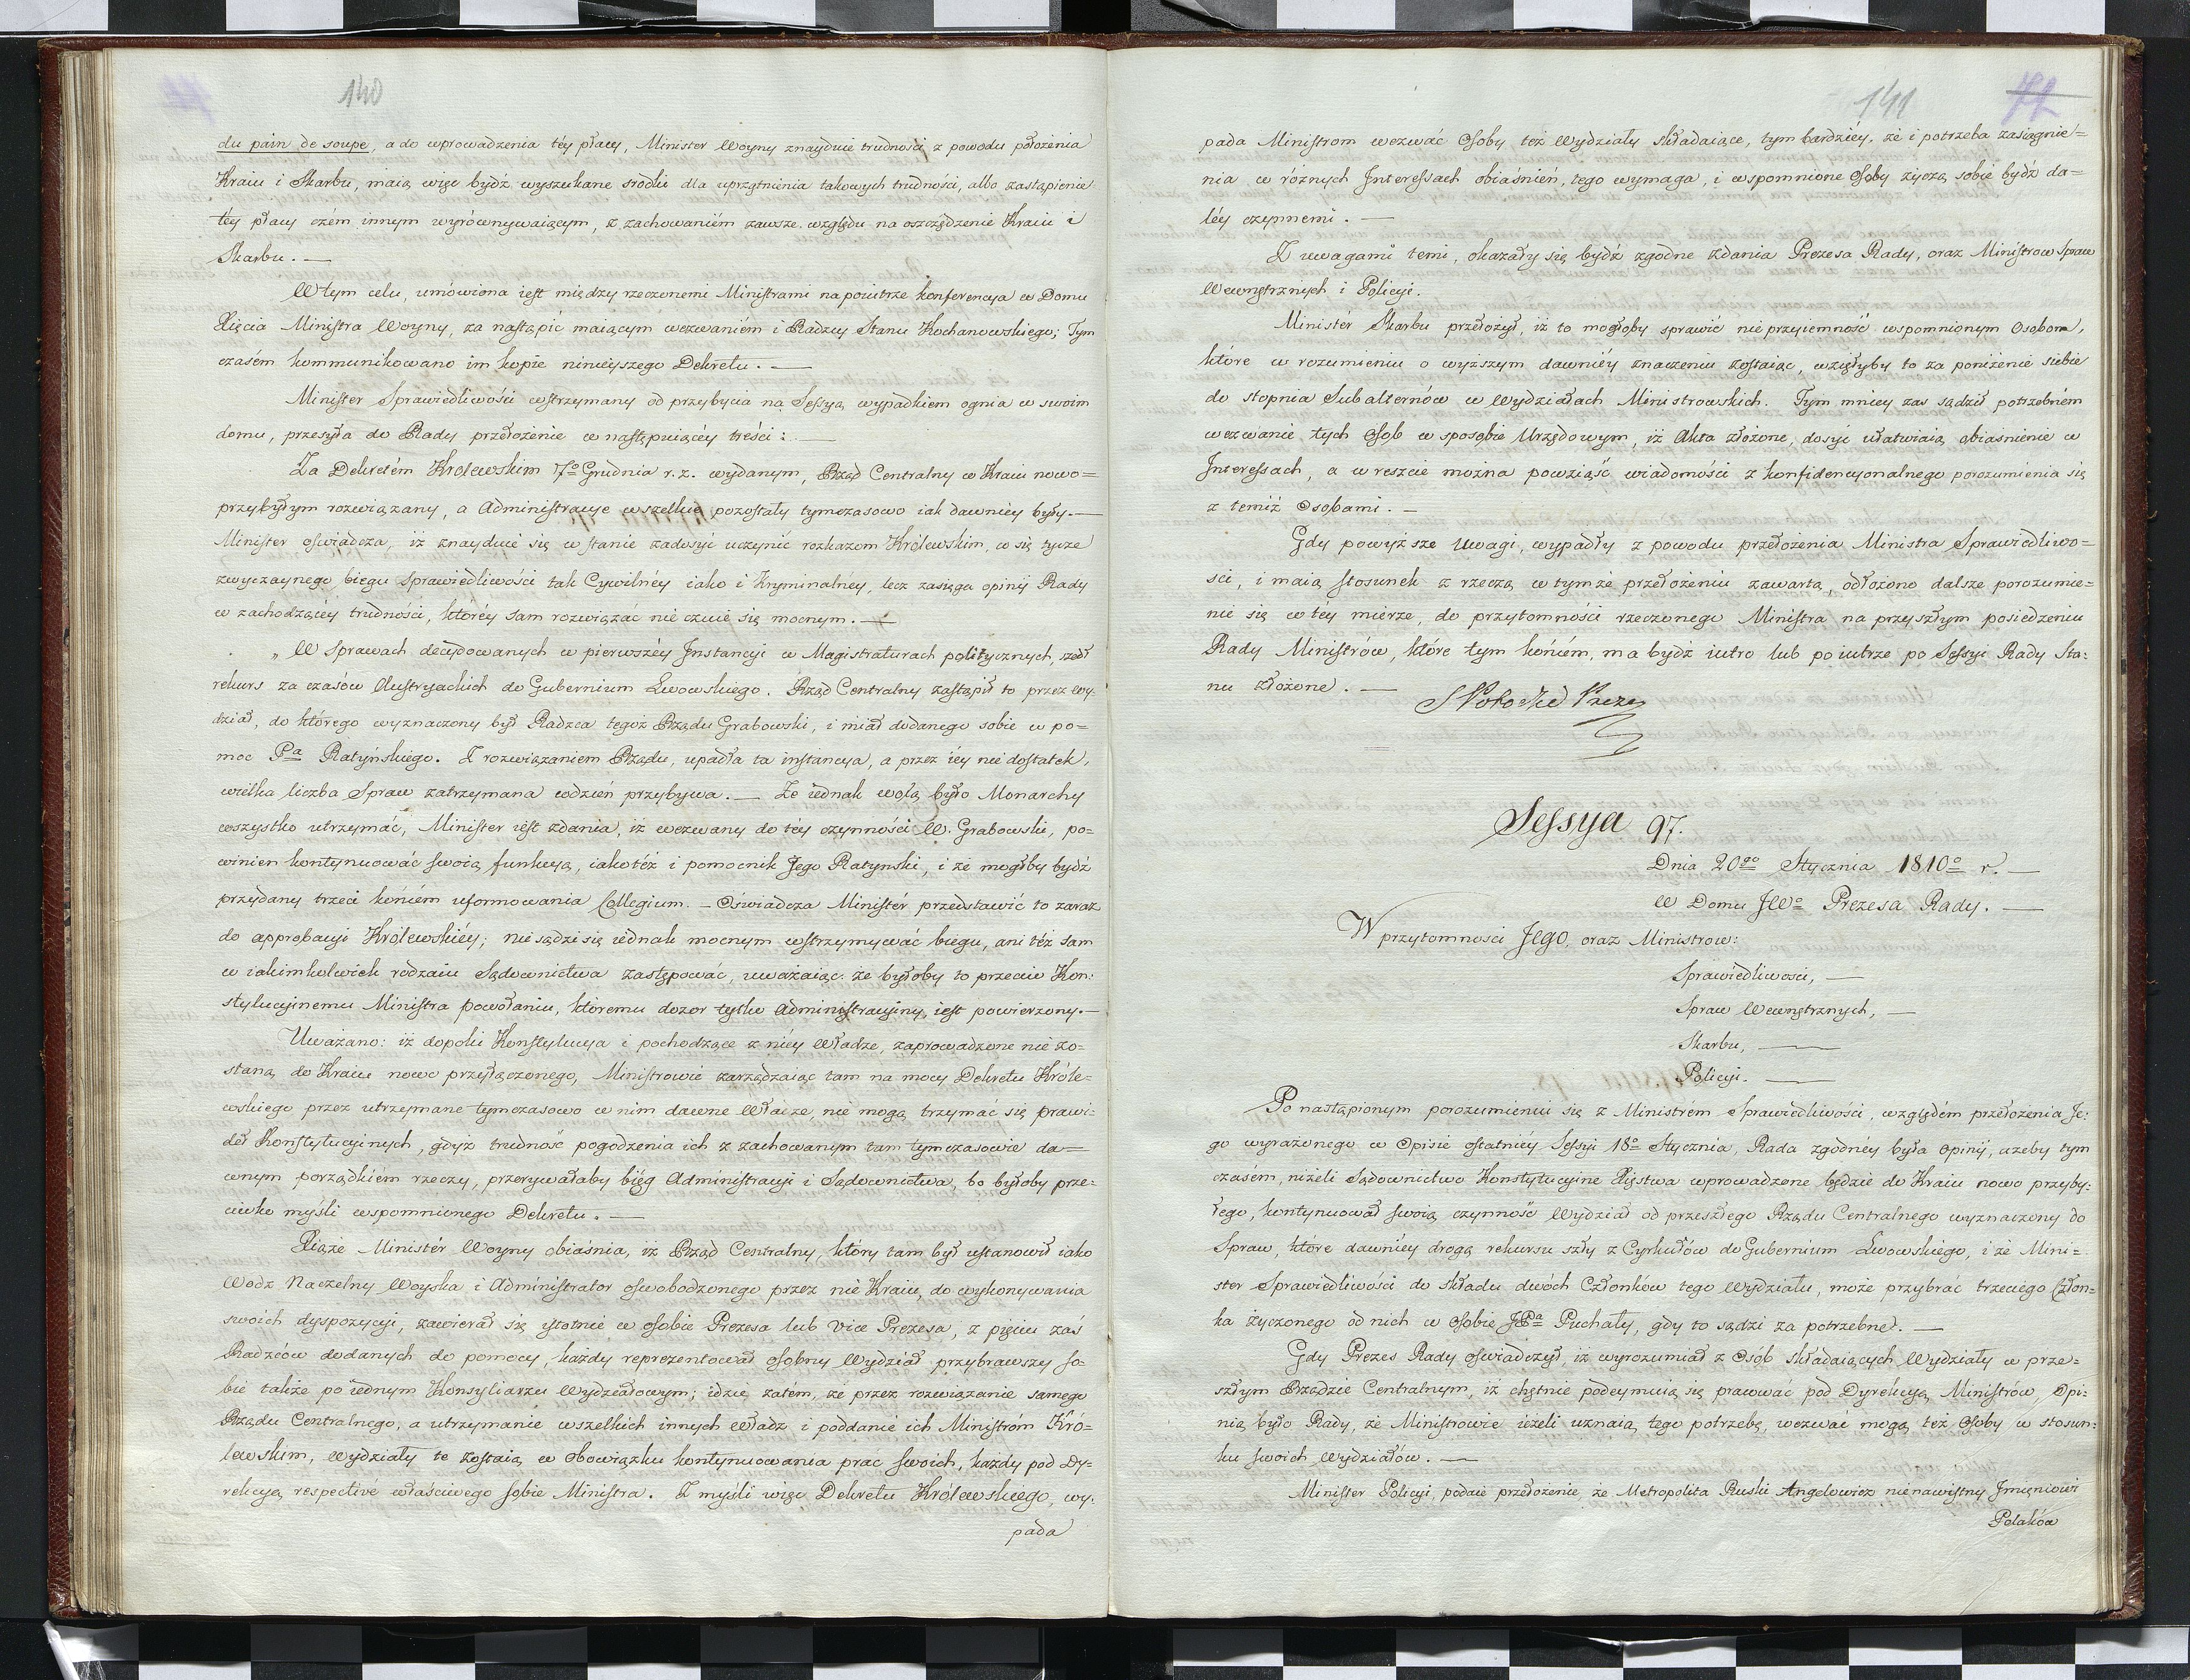 140
du pain de soupe, a do wprowadzenia téy płacy, Minister Woyny znayduie trudności, z powodu położenia
Kraiu i Skarbu, maią więc bydź wyszukane srodki dla uprzątnienia takowych trudności, albo zastąpienie
téy płacy czém innym wyrównywaiącym, z zachowaniém zawsze względu na oszczędzenie Kraiu i
Skarbu. —
W tym celu, umówiona iest między rzeczonemi Ministrami na poiutrze konferencya w Domu
Xięcia Ministra Woyny, za nastąpić maiącym wezwaniém i Radzcy Stanu Kochanowskiego; Tym
czasém kommunikowano im kopie ninieyszego Dekretu. —
Minister Sprawiedliwości wstrzymany od przybycia na Sessyą wypadkiem ognia w swoim
domu, przesyła do Rady przełożenie w następuiącéy treści: —
Za Dekretém Krolewskim 7º Grudnia r. z. wydanym, Rząd Centralny w Kraiu nowo=
przybyłym rozwiązany, a Administracye wszelkie pozostały tymczasowo iak dawniey były. —
Minister oświadcza, iż znayduie się w stanie zadosyć uczynić rozkazom Królewskim, co się tycze
zwyczaynego biegu sprawiedliwości tak Cywilnéy iako i Kryminalnéy, lecz zasięga opinij Rady
w zachodzącéy trudności, któréy sam rozwiązać nie czuie się mocnym. —
„ W Sprawach decydowanych w pierwszéy Instancyi w Magistraturach politycznych, szedł
rekurs za czasów Austryackich do Gubernium Lwowskiego. Rząd Centralny zastąpił to przez wy=
dział, do którego wyznaczony był Radzca tegoż Rządu Grabowski, i miał dodanego sobie w po=
moc Pa Ratyńskiego. Z rozwiązaniem Rządu, upadła ta instancya, a przez iéy niedostatek,
wielka liczba Spraw zatrzymana codzień przybywa. — Ze iednak wolą było Monarchy
wszystko utrzymać, Minister iest zdania, iż wezwany do téy czynności W. Grabowski, po=
winien kontynuować swoią funkcyą, iako też i pomocnik Jego Ratynski, i że mogłby bydź
przydany trzeci końcém uformowania Collegium. — Oświadcza Ministér przedstawić to zaraz
do approbacyi Królewskiéy; nie sądzi się iednak mocnym wstrzymywać biegu, ani téż sam
w iakimkolwiek rodzaiu Sądownictwa zastępować, uważaiąc że byłoby to przeciw Kon=
stytucyinemu Ministra powołaniu, któremu dozor tylko administracyiny, iest powierzony. —
Uważano: iż dopoki Konstytucya i pochodzące z niéy Władze, zaprowadzone nie zo=
staną do Kraiu nowo przyłączonego, Ministrowie zarządzaiąc tam na mocy Dekretu Króle=
wskiego przez utrzymane tymczasowo w nim dawne Władze, nie mogą trzymać się prawi=
deł Konstytucyinych, gdyż trudność pogodzenia ich z zachowanym tam tymczasowie da=
wnym porządkiém rzeczy, przerywałaby biég Administracyi i Sądownictwa, bo byłoby prze=
ciwko myśli wspomnionego Dekretu. —
Xiąże Ministér Woyny obiaśnia, iż Rząd Centralny, który tam był ustanowił iako
Wodz Naczelny Woyska i Administrator oswobodzonego przez nie Kraiu, do wykonywania
swoich dyspozycyi, zawierał się istotnie w osobie Prezesa lub Vice Prezesa, z pięciu zaś
Radzców dodanych do pomocy, każdy reprezentował osobny Wydział przybrawszy so=
bie także po iednym Konsyliarzu Wydziałowym; idzie zatém, że przez rozwiązanie samego
Rządu Centralnego, a utrzymanie wszelkich innych Władz i poddanie ich Ministróm Kró=
lewskim, wydziały te zostaią w obowiązku kontynuowania prac swoich, każdy pod Dy=
rekcyą respectivé właściwego sobie Ministra. Z myśli więc Dekretu Królewskiego, wy=
pada
141
pada Ministrom wezwać Osoby też Wydziały składaiące, tym bardziéy, że i potrzeba zasiągnie=
nia w rożnych Interessach obiaśnień, tego wymaga, i wspomnione Osoby życzą sobie bydź da=
léy czynnemi. —
Z uwagami temi, okazały się bydź zgodne zdania Prezesa Rady, oraz Ministrow Spraw
Wewnętrznych i Policyi.
Ministér Skarbu przełożył, iż to mogłoby sprawić nieprzyiemność wspomnionym Osobom,
które w rozumieniu o wyższym dawniéy znaczeniu zostaiąc, wzięłyby to za poniżenie siebie
do stopnia Subalternów w Wydziałach Ministrowskich. Tym mniey zas sądził potrzebném
wezwanie tych Osob w sposobie Urzędowym, iż Akta złożone, dosyć ułatwiaią obiasnienie w
Interessach, a w reszcie można powziąść wiadomości z konfidencyonalnego porozumienia się
z temiż Osobami. —
Gdy powyższe Uwagi, wypadły z powodu przełożenia Ministra Sprawiedliwo=
sci, i maią stosunek z rzeczą w tymże przełożeniu zawartą, odłożono dalsze porozumie=
nie się w téy mierze, do przytomności rzeczonego Ministra na przyszłym posiedzeniu
Rady Ministrów, które tym końcém, ma bydź iutro lub poiutrze po Sessyi Rady Sta=
nu złożone. —
S Potocki Prezes
Sessya 97.
Dnia 20go Stycznia 1810º r. —
W Domu JWo Prezesa Rady. —
W przytomnosci Jego, oraz Ministrow:
Sprawiedliwosci, —
Spraw Wewnętrznych, —
Skarbu, —
Policyi. —
Po nastąpionym porozumieniu się z Ministrém Sprawiedliwości, względém przełożenia Je=
go wyrażonego w Opisie ostatniéy Sessyi 18º Stycznia, Rada zgodnéy była opinij, ażeby tym
czasém, niżeli Sądownictwo Konstytucyine Xięstwa wprowadzone będzie do Kraiu nowo przyby=
łego, kontynuował swoią czynność Wydział od przeszłego Rządu Centralnego wyznaczony do
Spraw, które dawniéy drogą rekursu szły z Cyrkułów do Gubernium Lwowskiego, i że Mini=
ster Sprawiedliwości do składu dwóch Członków tego Wydziału, może przybrać trzeciego Człon=
ka życzonego od nich w osobie JPa Puchały, gdy to sądzi za potrzebne. —
Gdy Prezes Rady oświadczył, iż wyrozumiał z Osób składaiących Wydziały w prze=
szłym Rządzie Centralnym, iż chętnie podeymuią się pracować pod Dyrekcyą Ministrów, Opi=
nią było Rady, że Ministrowie ieżeli uznaią tego potrzebę, wezwać mogą też Osoby w stosun=
ku swoich Wydziałów. —
Minister Policyi, podaie przełożenie, że Metropolita Ruski Angelowicz nienawistny Imieniowi
Polaków